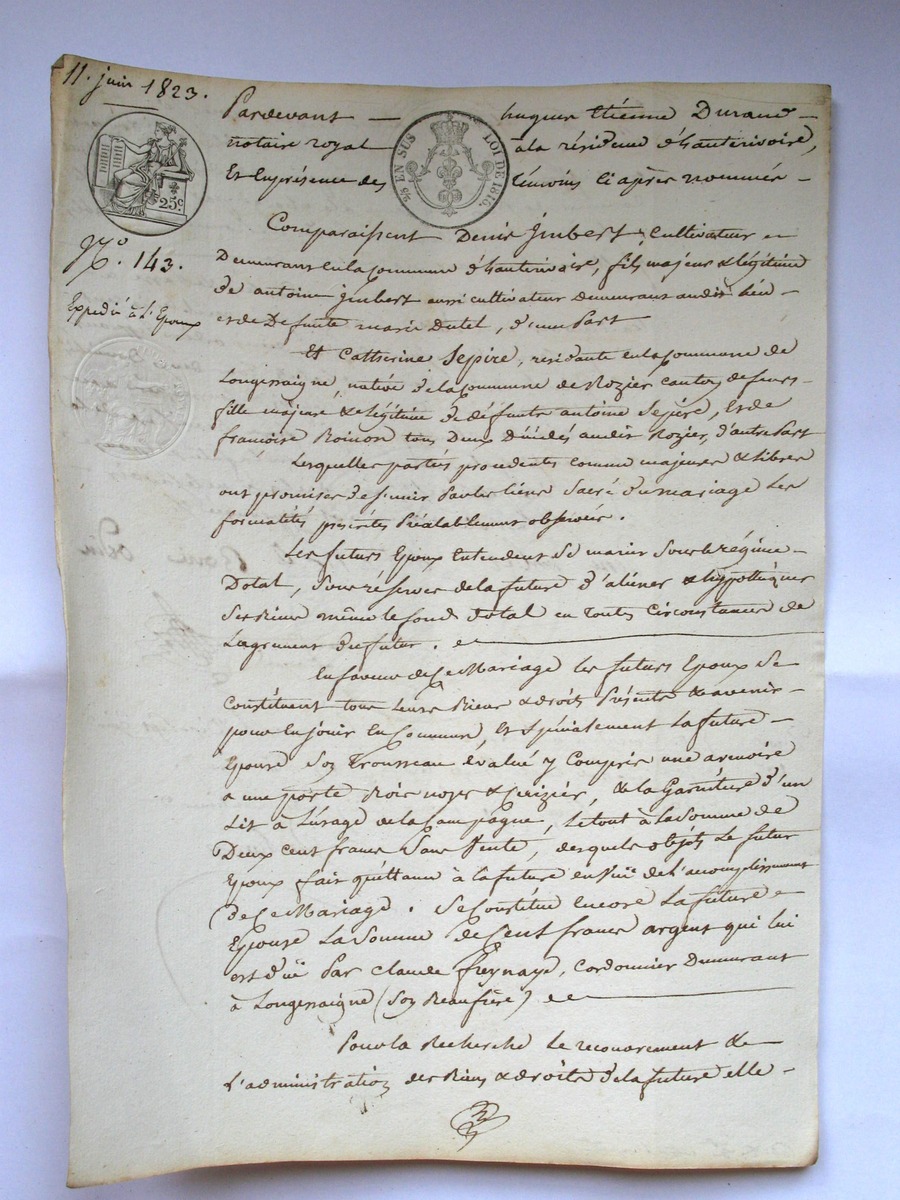 11. juin 1823.
Pardevant — hugues Etienne Durand —
notaire royal à la résidence d'hauterivoire,
Et En présence des témoins Ci après nommés —
25c.
25 EN SUS LOI DE 1816.
N.o 143.
Expedié à L'Epoux
Comparaissent Denis Jmbert, Cultivateur
Demeurant en la Commune d'hauterivoire, fils majeur & légitime
de antoine jmbert aussi cultivateur demeurant audit lieu
et de Defunte marie dutel, d'une Part
Et Catherine Sepire, résidante en la Commune de
Longessaigne, native de la Commune de Rozier canton de feurs
fille majeure & légitime de défunts antoine Sepère, Et de
françoise Roinon tous Deux Décédés audit Rozier, d'autre Part
Lesquelles parties procedentes comme majeures & libres
ont promises de s'unir Par les liens Sacré du mariage Les
formalités préscrites Préalablement observées.
Les futurs Epoux Entendent Se marier Sous le régime
Dotal, Sous réserves de la future d'aliéner & hyppothéquer
Ses Biens même le fond Dotal en Toutes Circonstances de
L'agrement du futur.
En faveur de Ce Mariage Les futurs Epoux Se
Constituent tous Leurs Biens & droits Présents & avenir
pour En jouir En Commun, Et Spécialement La future
Epouse Son Trousseau évalué y Compris une armoire
a une porte Bois noyer & Cerizier, & la Garniture d'un
Lit à L'usage de la Campagne, Le tout à la Somme de
Deux Cent francs Sans Vente, desquels objets Le futur
Epoux fait quittance à la future en vüe de L'accomplissement
de Ce Mariage. Se Constitue encore La future
Epouse La Somme de Cent francs argent qui lui
est düe Par Claude freynays, Cordonnier Demeurant
à Longessaigne (Son Beaufrère)
Pour la Recherche Le recouvrement &
L'administration des Biens & droits de la future elle —